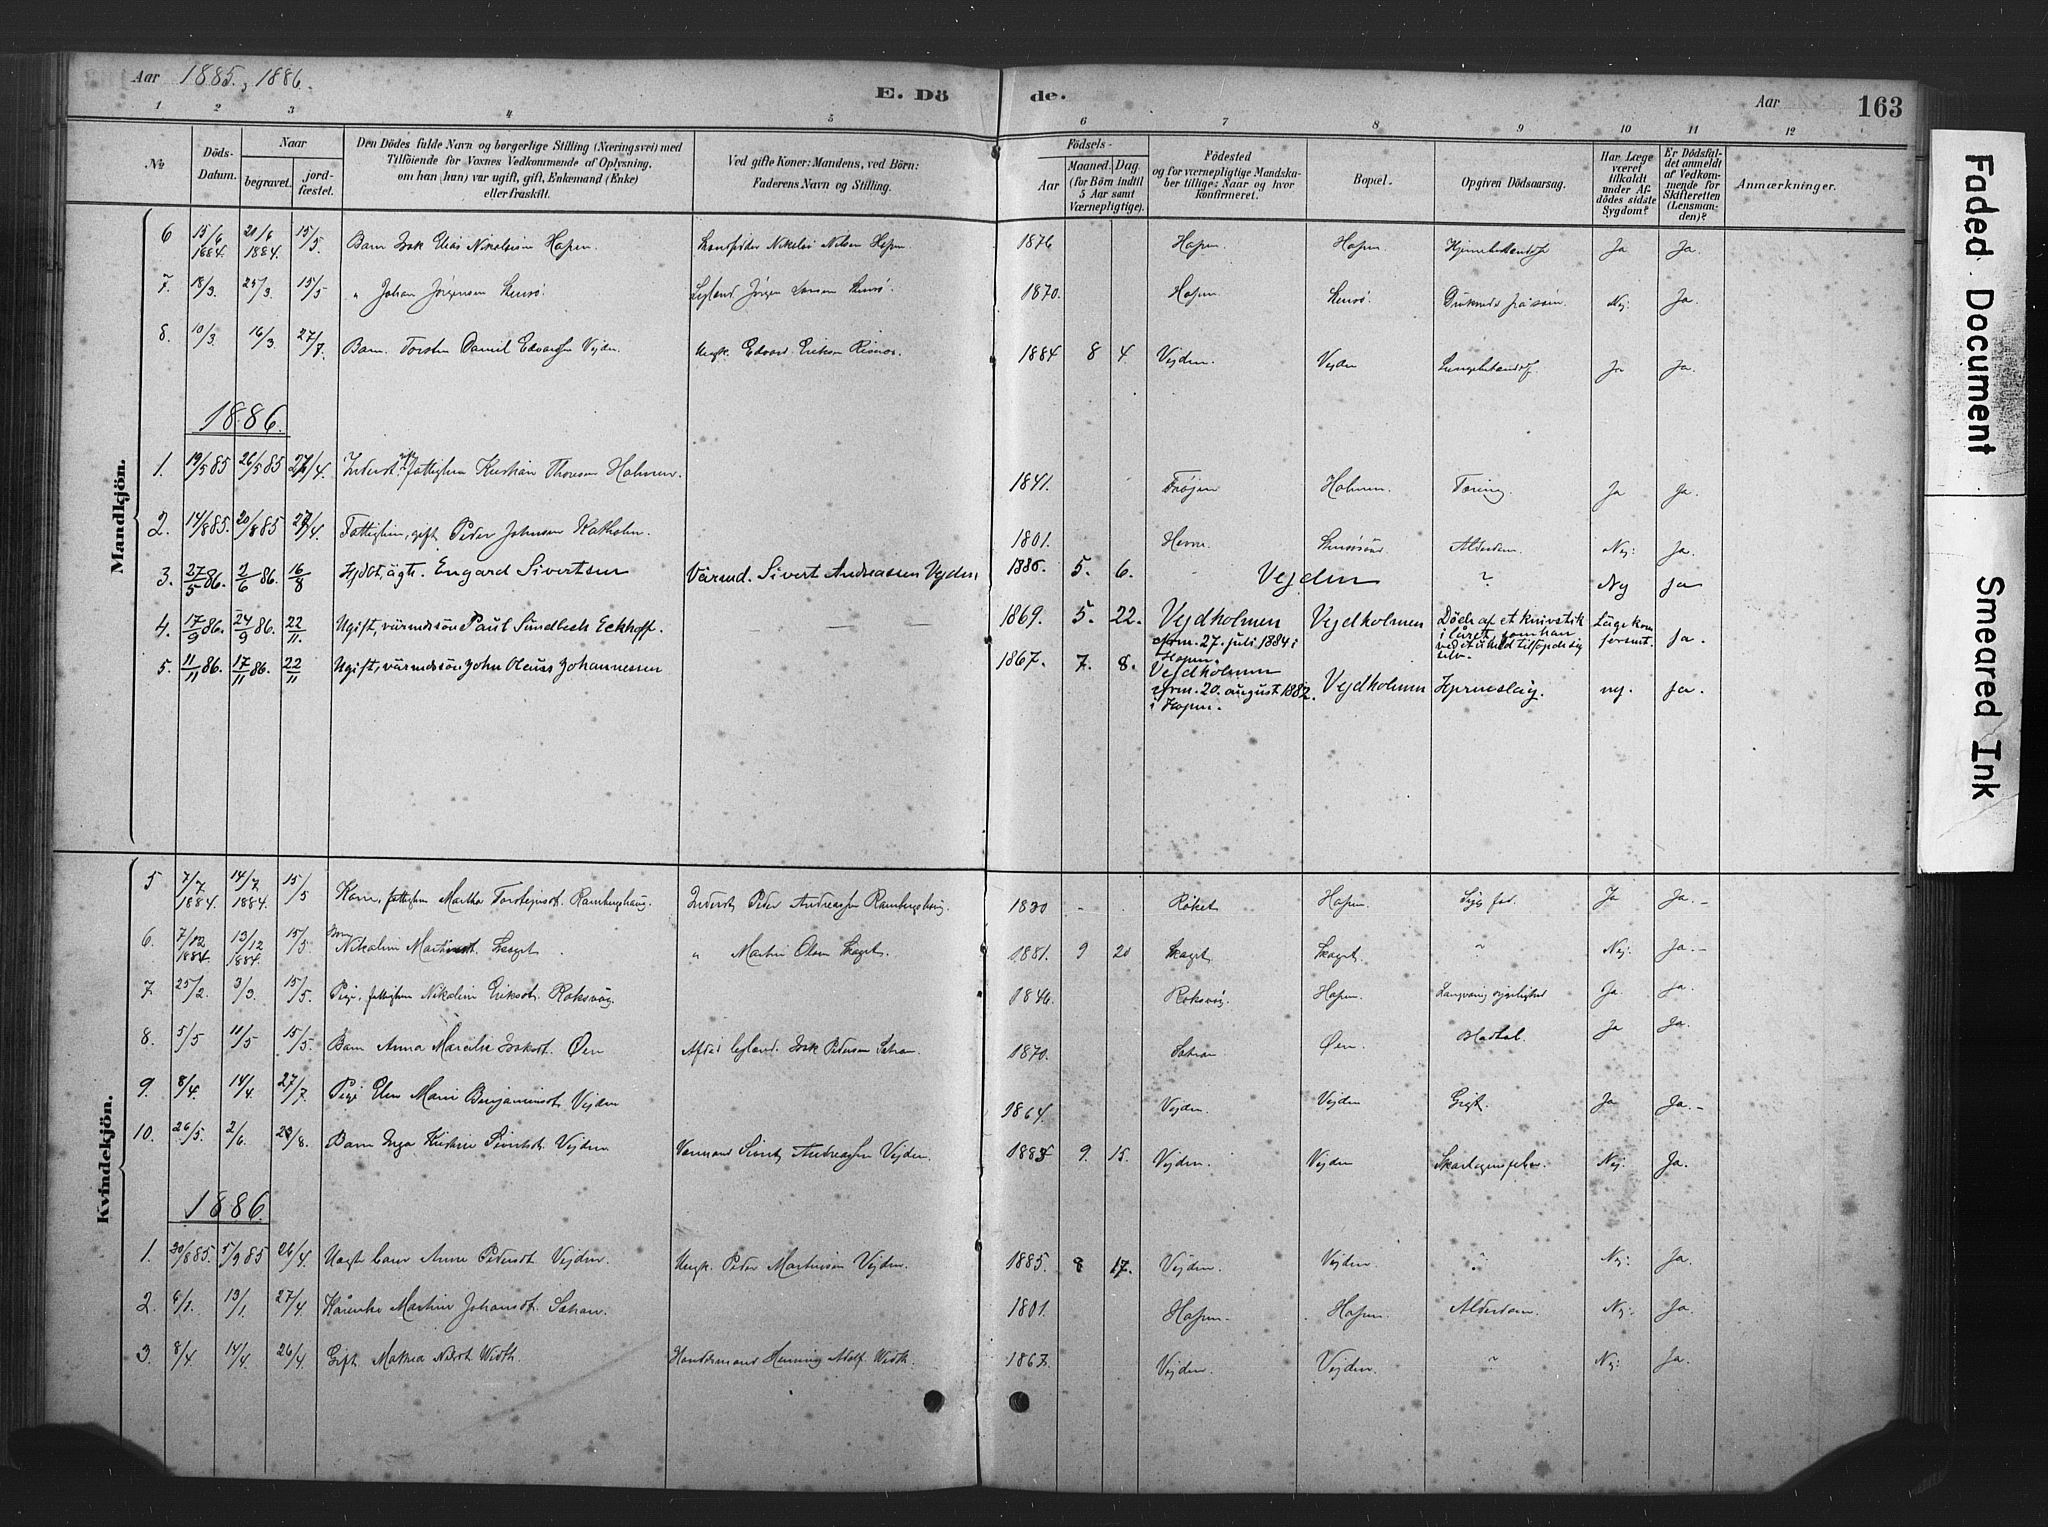 Aar 1885, 1886.
E. Dö de.
Aar
163
1 2 3 4 5 6 7 8 9 10 11 12
№
Döds-
Datum.
Naar
begravet.
jord-
fæstet.
Den Dödes fulde Navn og borgerlige Stilling (Næringsvei) med
Tilföiende for Voxnes Vedkommende af Oplysning,
om han (hun) var ugift, gift, Enkemand (Enke)
eller fraskilt.
Ved gifte Koner: Mandens, ved Börn:
Faderens Navn og Stilling.
Födsels-
Aar
Maaned. Dag.
(for Börn indtil
5 Aar samt
Værnepligtige).
Födested
og for værnepligtige Mandska-
ber tillige: Naar og hvor
konfirmeret.
Bopæl.
Opgiven Dödsaarsag.
Har Læge
været
tilkaldt
under Af-
dödes sidste
Sygdom?
Er Dödsfal-
det anmeldt
af Vedkom-
mende for
Skifteretten
(Lensman-
den)?
Anmærkninger.
Mandkjön.
6 15/6 1884. 20/6 1884. 15/5 Barn Isak Elias Nikolaisen Hopen. Nikolai Nilsen Hopen. 1876 Hopen. Hopen. Ja Ja.
7. 18/3. 25/3. 15/5 " Johan Jörgensen Jörgen 1870. Hopen. Nej. Ja.
8. 10/3. 16/3. 27/7. Barn Torsten Daniel Edvardsen Vejden. Ungk. Edvard Eriksen 1884 8 4. Vejden. Vejden Ja Ja.
1886.
1. 19/5 85 26/5 85 27/4. Inderst, fattiglem Kristian Thoresen Holmen. 1841. Frøjen Holmen. Tæring. Ja Ja.
2. 14/8 85. 20/8 85 27/4. Fattiglem, gift Peder Johnsen 1801. Hevne. Alderdom. Nej: Ja.
3. 27/5 86. 2/6 86. 16/8 Hjdöt, ägte. Engard Sivertsen Värmd. Sivert Andreassen Vejden. 1886. 5. 6. Vejden ? Nej Ja
4. 17/9 86. 24/9 86. 22/11. Ugift, värmdssön Paul Sundbech Eckhoff. 1869. 5. 22. Vejdholmen Vejdholmen Döde af et knivstik Läge kom
cfrm. 27. juli 1884 i i låret, som han forsent. Ja.
Hopen. ved et uheld tilföjede sig
selv.
5. 11/11 86. 17/11 86. 22/11 Ugift, värmdssön John Oleus Johannessen 1867. 7. 8. Vejdholmen
cfrm. 20. august 1882. Vejdholmen Hjerneslag. nej. Ja.
i Hopen.
Kvindekjön.
5 7/7 1884. 14/7 1884. 15/5 Kone, fattiglem Martha Torsteinsdt. Ramberghaug. Inderst Peder Andreassen Ramberghaug. 1830 - Røket Hopen. Ja Ja.-
6. 7/12 1884. 13/12 1884. 15/5 Barn Nikoline Martinsdt. Skaget. " Martin Olsen Skaget. 1881. 9 20 Skaget Skaget. " Nej. Ja.-
7. 25/2. 3/3. 15/5. Pige, fattiglem Nikoline Eriksdt. Roksvög. 1846. Roksvög. Hopen. Langvarig sygelighed Ja. Ja.
8. 5/5 11/5 15/5. Barn Anna Isaksdt. Øen Afdöd Isak Pedersen 1870. Øen. Ja Ja.
9. 8/4. 14/4. 27/7. Pige Elen Marie Benjaminsdt. Vejden 1864. Vejden. Vejden Gigt. Ja Ja.-
10. 26/5. 2/6. 23/8. Barn Inga Kristine Sivertsdt. Vejden Värmand Sivert Andreassen Vejden. 1885 9. 15. Vejden. Vejden Skarlagensfeber. Nej. Ja.
1886.
1. 30/8 85. 5/9 85 26/4. Uægte barn Anne Pedersdt. Vejden. Ungk. Peder Martinsen Vejden. 1885. 8 17. Vejden. Vejden. " Nej: Ja.
2. 6/1. 13/1. 27/4. Martine Johansdt. 1801. Hopen. Hopen. Alderdom. Nej: Ja.
3. 8/4. 14/4. 26/4. Gift. Mathea Nilsdt. Width. Handelsmand Henning Adolf Width. 1867. Vejden. Vejden. " Nej: Ja.
Faded Document
Smeared Ink